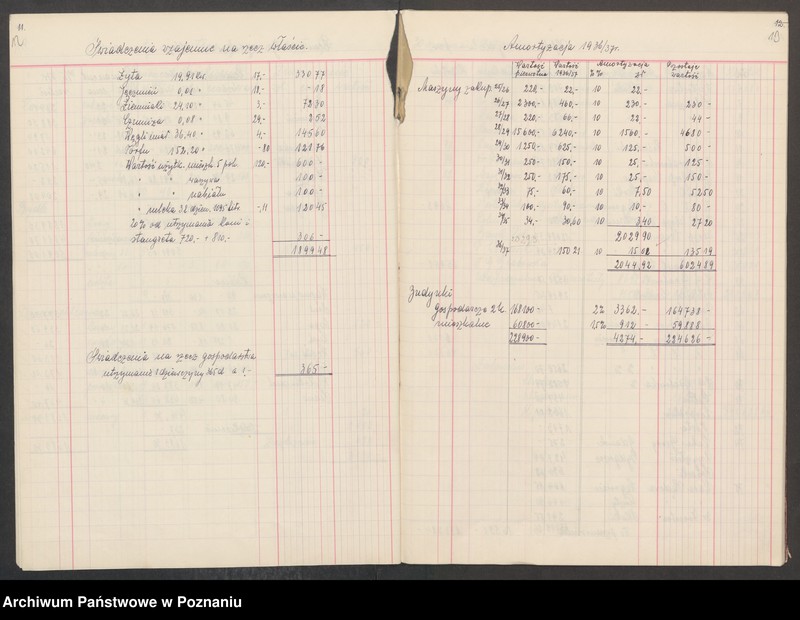 11.
Świadczenia wzajemne na rzecz właścic.
Żyta 19.41 kw. 17.- 330 77
Jęczmień 0,01 " 18.- - 18
Ziemniaki 24.10 " 3,- 72 30
0,08 " 29,- 2 52
Węgli 36,40 " 4,- 145 60
Torfu 152.20 " -80 121 76
Wartość użytk. mieszk. 5 pok. 120,- 600 -
" " warzyw 100 -
" " nabiału 100 -
" mleka 3 l dzien. 1095 litr. -,11 120 45
20% od utrzymania koni i
stangreta 720,- + 810,- 306 -
1899 48
Świadczenia na rzecz gospodarstwa
utrzymanie 1 dziewczyny 365 d a 1,- 365 -
12.
13
Amortyzacja 1936/37 r.
Wartość pierwotna Wartość 1936/37 Amortyzacja % zł Pozostaje wartość
Maszyny zakup. 25/26 220,- 22,- 10 22,-
26/27 2300,- 460,- 10 230,- 230 -
27/28 220,- 66,- 10 22,- 44 -
28/29 15600,- 6240,- 10 1560,- 4680 -
29/30 1250,- 625,- 10 125,- 500 -
30/31 250,- 150,- 10 25,- 125 -
31/32 250,- 175,- 10 25,- 150 -
32/33 75,- 60,- 10 7,50 52 50
33/34 100,- 90,- 10 10,- 80 -
34/35 34,- 30,60 10 3,40 27 20
2029 90
36/37 150 21 10 15 02 135 19
2044,92 6024 89
Budynki
Gospodarcze 2% 168100 - 2% 3362,- 164738 -
mieszkalne 60800 - 1,5% 912,- 59888
228900 - 4274,- 224626 -
Archiwum Państwowe w Poznaniu